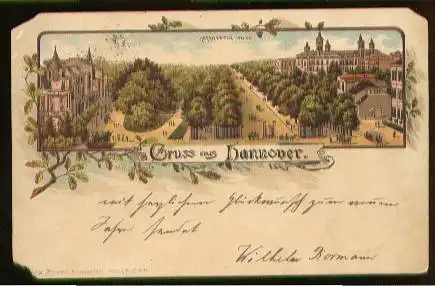 Gruss aus Hannover.
mit herzlichem Glückwunsch zum neuen
Jahre sendet
Wilhelm Bormann